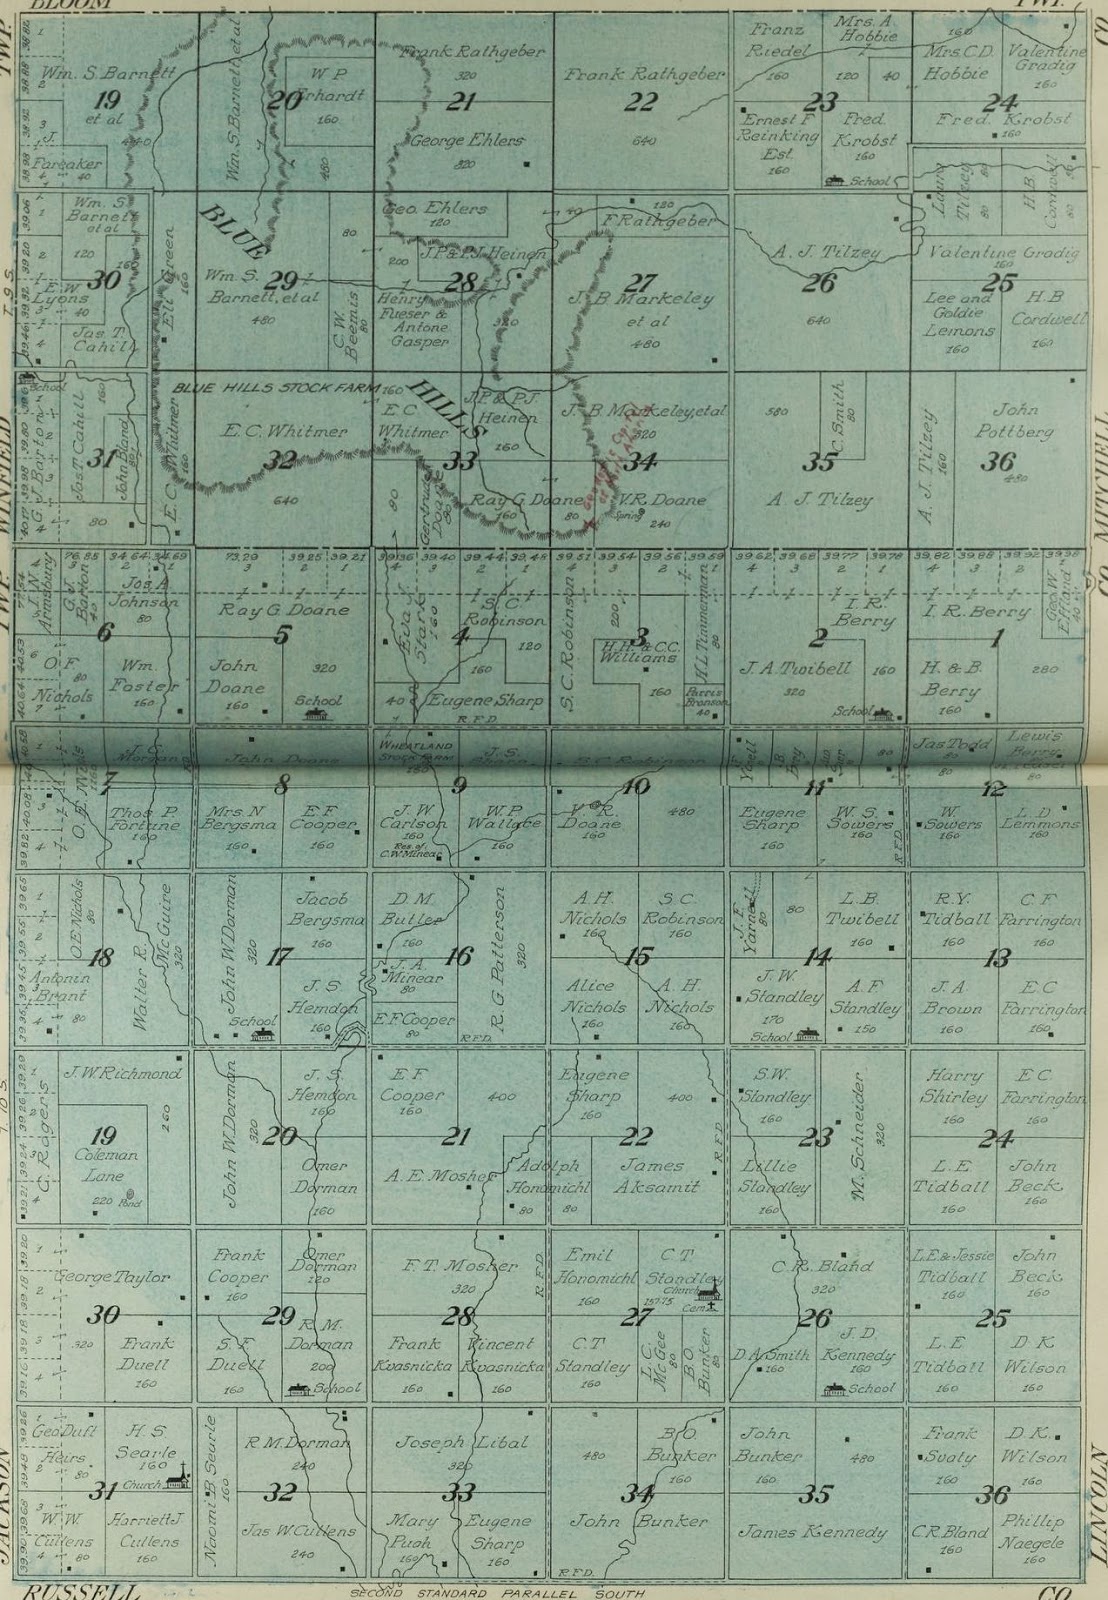 BLOOM
TWP.
TWP.
CO.
Wm. S. Barnett
19
et al
J.
Faraaker
40
Wm. S. Barnett, et al
20
W P
Erhardt
160
480
Frank Rathgeber
320
21
George Ehlers
320
Frank Rathgeber
22
640
Franz
Riedel
160
Mrs. A
Hobbie
120
40
23
Ernest F
Reinking
Est.
160
Fred.
Krobst
160
School
160
Mrs. C.D.
Hobbie
Valentine
Gradig
160
24
Fred. Krobst
160
Wm. S.
Barnett
et al
120
160
30
E.W.
Lyons
40
Jas. T.
Cahill
Ell Green
160
BLUE
29
Wm. S.
Barnett, et al
480
80
C.W.
Beemis
80
Geo. Ehlers
120
200
J.P. & P.J. Heinen
28
Henry
Flieser &
Antone
Gasper
320
40
120
F. Rathgeber
27
J. B Markeley
et al
480
A. J. Tilzey
26
640
Laura
Tilzey
80
H.B.
Cordwell
80
Valentine Gradig
160
25
Lee and
Goldie
Lemons
160
H.B
Cordwell
160
WINFIELD TWP.
MITCHELL CO.
School
G. J. Barton
Jas T. Cahill
160
31
John Bland
80
80
E. C. Whitmer
160
BLUE HILLS STOCK FARM
E.C. Whitmer
32
640
160
E C
Whitmer
HILLS
J.P. & P.J.
Heinen
160
33
80
Gertrude
Doane
80
Ray G Doane
160
80
J. B Markeley, et al
320
34
V.R. Doane
Spring
240
580
C. Smith
80
35
A. J Tilzey
A. J. Tilzey
160
John
Pottberg
36
480
76.85
34.64
34.69
73.29
39.25
39.21
39.36
39.40
39.44
39.48
39.51
39.54
39.56
39.59
39.62
39.68
39.77
39.78
39.82
39.88
39.92
39.98
I. N.
Armsbury
G. J.
Barton
40
Jos. A
Johnson
80
160
6
O F
Nichols
80
Wm.
Foster
160
Ray G. Doane
5
John
Doane
160
320
School
Eva J
Stark
160
S. C.
Robinson
4
160
120
40
Eugene Sharp
R.F.D.
S. C. Robinson
200
3
H.H. & C.C.
Williams
160
H.L Timmerman
80
Parris
Bronson
40
I. R.
Berry
2
J. A Twibell
320
160
School
I. R. Berry
1
H. & B.
Berry
160
280
Geo. W.
Effland
40
O. E. Wells
160
J. C.
Morgan
7
Thos. P.
Fortune
160
John Doane
8
Mrs. N
Bergsma
160
E F
Cooper
160
WHEATLAND
STOCK FARM
160
9
J. W
Carlson
160
Res. of
C.W. Minear
W. P.
Wallace
160
S. C Robinson
10
V. R.
Doane
160
480
11
Eugene
Sharp
160
W. S.
Sowers
160
R.F.D.
Jas Todd
80
Lewis
Berry
80
12
W.
Sowers
160
L. D
Lemmons
160
O.E Nichols
80
18
Antonin
Brant
80
Walter R.
McGuire
320
John W Dorman
320
School
Jacob
Bergsma
160
17
J. S
Hemdon
160
D. M.
Butler
160
16
J. A
Minear
80
E F Cooper
80
R. G. Patterson
320
R.F.D.
A.H.
Nichols
160
S. C.
Robinson
160
15
Alice
Nichols
160
A. H.
Nichols
160
J. F.
Yarnell
80
80
L. B
Twibell
160
14
J. W.
Standley
170
School
A. F
Standley
150
R.Y.
Tidball
160
C F
Farrington
160
13
J. A
Brown
160
E C
Farrington
160
J.W. Richmond
260
C. Rogers
19
Coleman
Lane
220
Pond
John W. Dorman
320
J. S
Hemdon
160
20
Omer
Dorman
160
E F
Cooper
160
400
21
A. E. Mosher
Adolph
Honomichl
80
80
Eugene
Sharp
160
400
22
James
Aksamit
R.F.D.
S.W.
Standley
160
23
Lillie
Standley
160
M. Schneider
320
Harry
Shirley
160
E C
Farrington
160
24
L. E
Tidball
160
John
Beck
160
George Taylor
30
320
Frank
Duell
160
Frank
Cooper
160
Omer
Dorman
120
29
S. F
Duell
160
R. M.
Dorman
200
School
F. T. Mosher
320
28
Frank
Kvasnicka
160
Vincent
Kvasnicka
160
R.F.D.
Emil
Honomichl
160
C T
Standley
Church
157.75
Cem.
27
C. T
Standley
160
L. C.
McGee
80
B.O.
Bunker
80
C. R. Bland
320
26
D. A. Smith
160
J. D.
Kennedy
160
School
L.E & Jessie
Tidball
160
John
Beck
160
25
L. E
Tidball
160
D K
Wilson
160
JACKSON
LINCOLN
Geo Duft
Heirs
80
H. S.
Searle
160
Church
31
W. W.
Cullens
80
Harriett J
Cullens
160
Naomi B. Searle
160
R M. Dorman
240
32
Jas W Cullens
240
Joseph Libal
320
33
Mary
Pugh
160
Eugene
Sharp
160
480
B.O.
Bunker
160
34
John Bunker
R.F.D.
John
Bunker
160
480
35
James Kennedy
Frank
Svaty
160
D. K.
Wilson
160
36
C.R. Bland
160
Phillip
Naegele
160
RUSSELL
SECOND STANDARD PARALLEL SOUTH
CO.